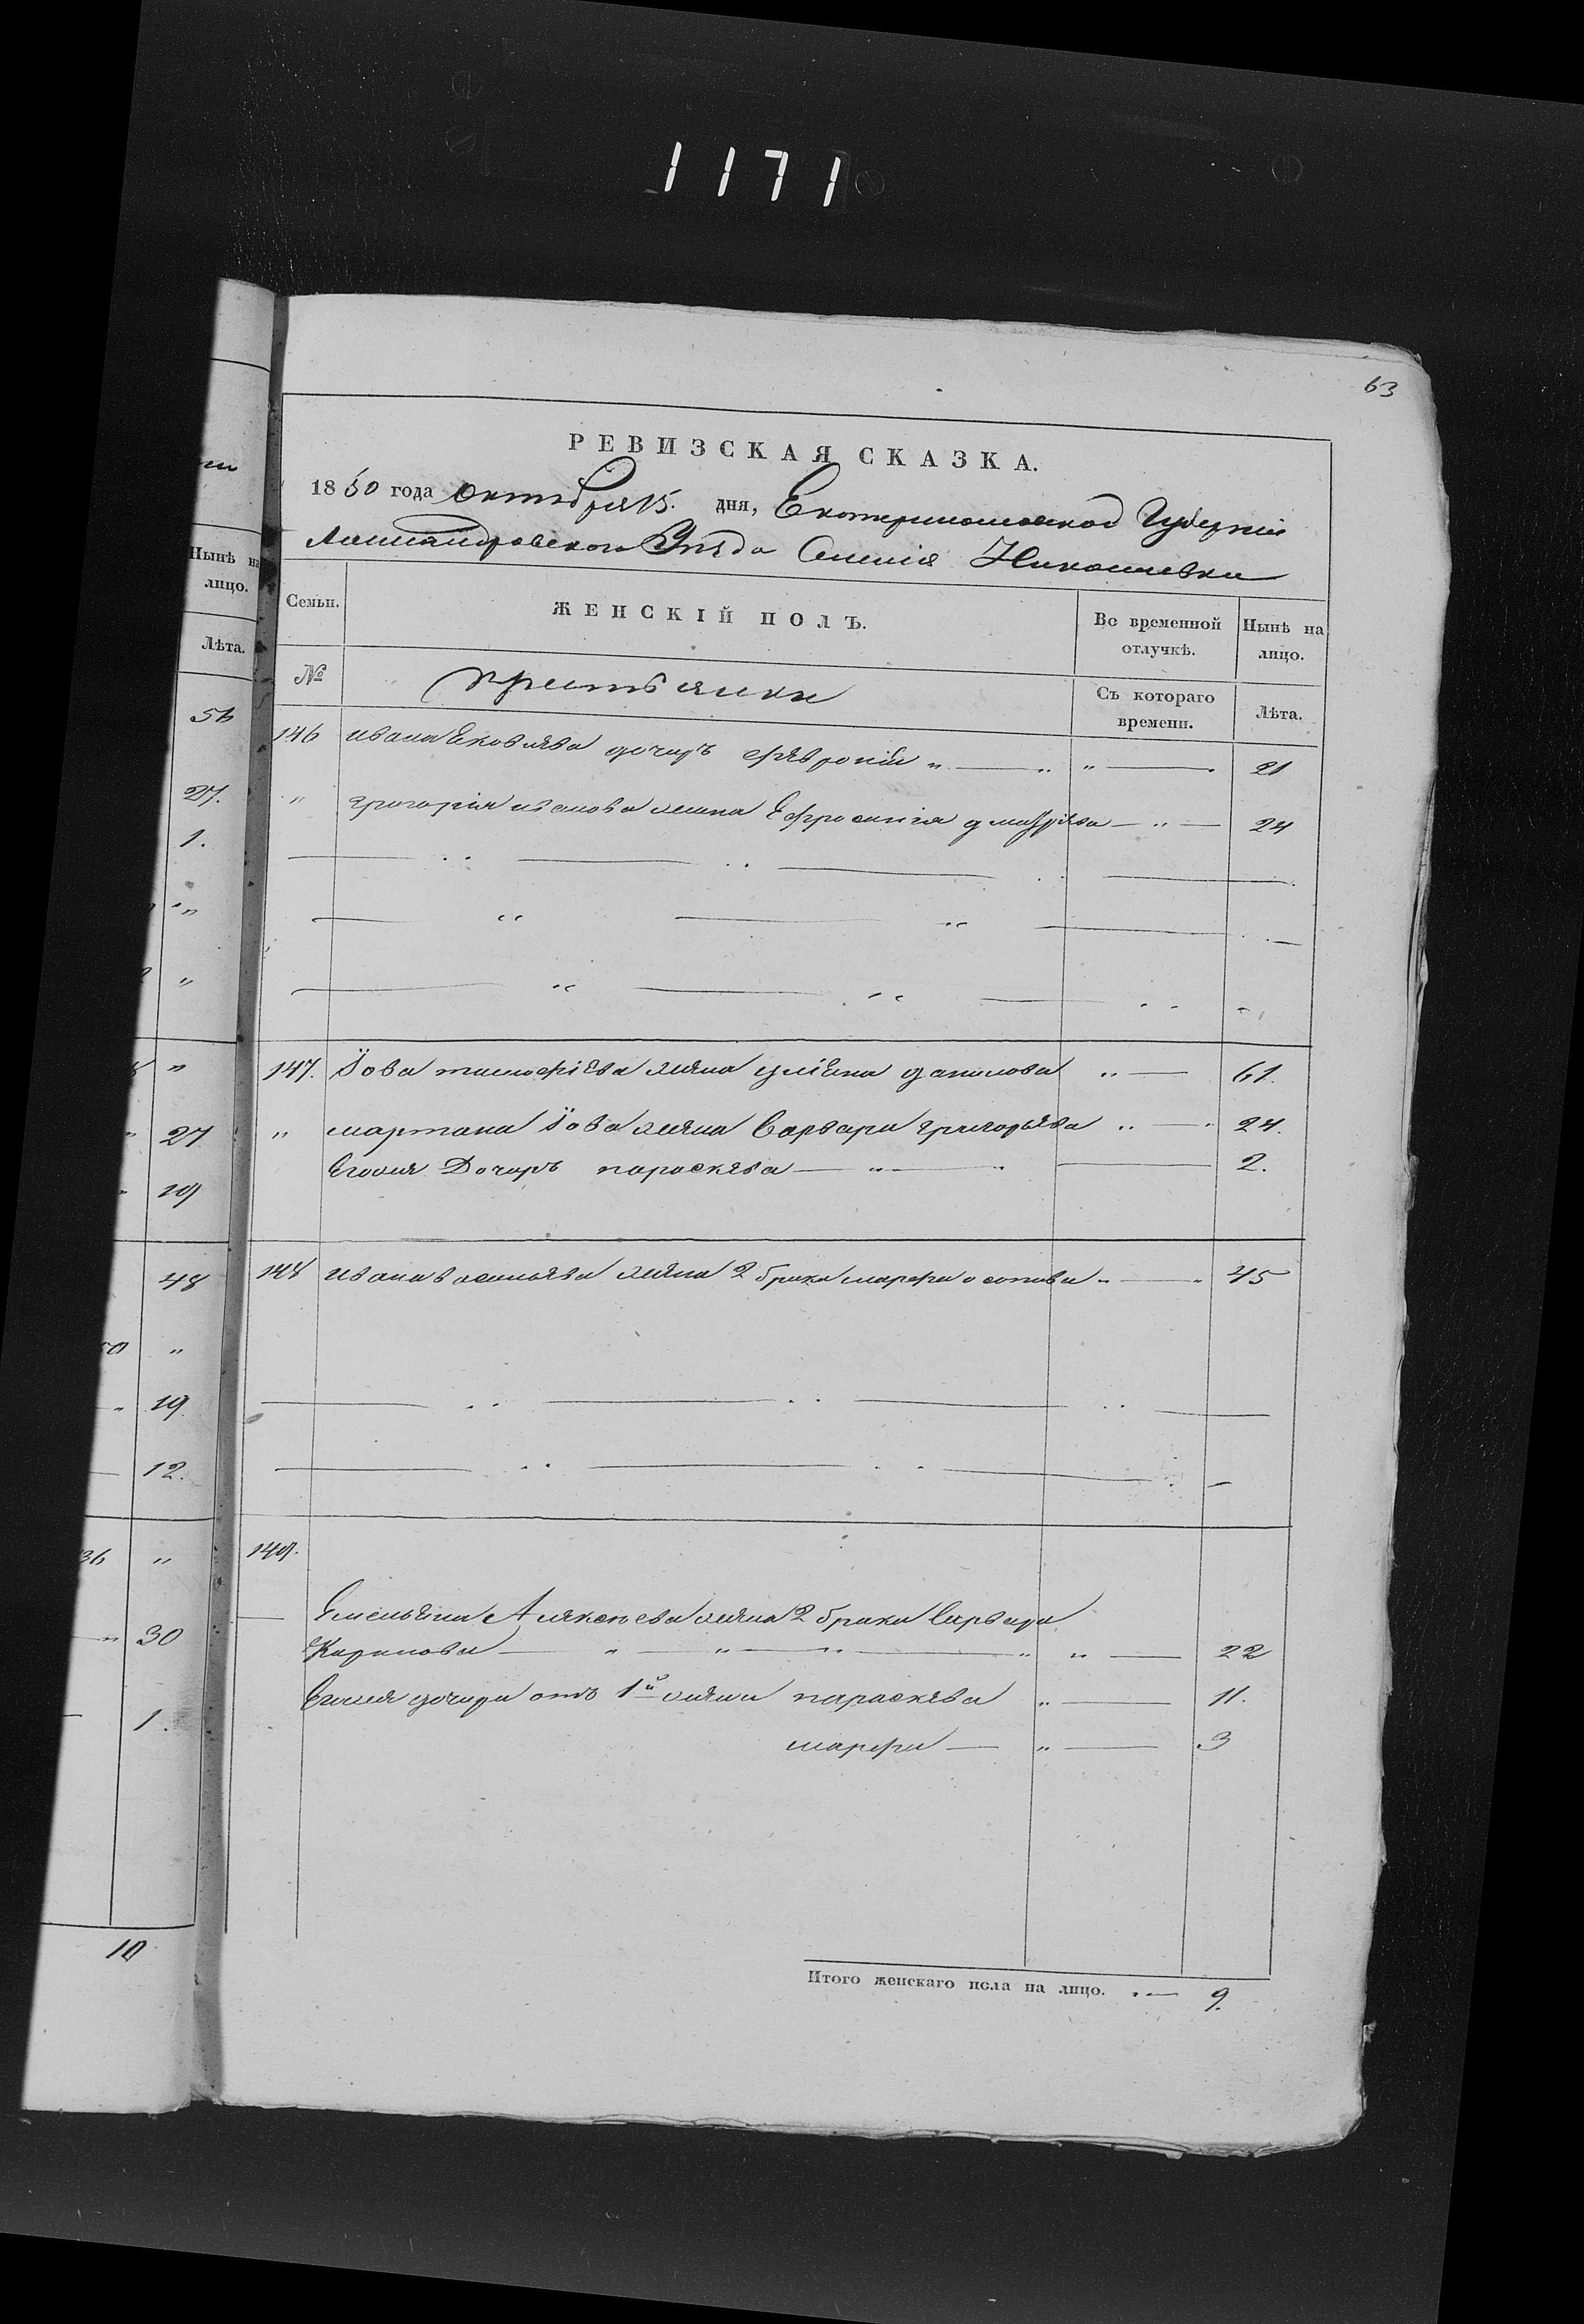 1171
63
РЕВИЗСКАЯ СКАЗКА.
1850 года октября 15. дня, Екатеринославской Губернии
Александровского Уезда Селения Николаевки
Семьи. ЖЕНСКІЙ ПОЛЪ. Во временной отлучкѣ. Нынѣ на лицо.
№ крестьянки Съ котораго времени. Лѣта.
146 ивана Яковлева дочиръ 21
" григория иванова жена Ефросиния дмитриева — " — 24
147. Їова тимофіева жена улиена данилова " — 61.
" мартина Їова жена варвара григорьева " — " 24.
Егожя Дочиръ параскева — " — 2.
148 ивана васильева жена 2 брака марфа осипова " — " 45
149.
Емельяна Алексеева жена 2 брака варвара
Карпова — " — " — " — " " — 22
Егожя дочири отъ 1й жены параскева " — 11.
марфа — " — 3
Итого женскаго пола на лицо. — 9.
Нынѣ на
лицо.
Лѣта.
56
27.
1.
"
"
"
27
19
48
"
19.
12.
36 "
30
1.
10